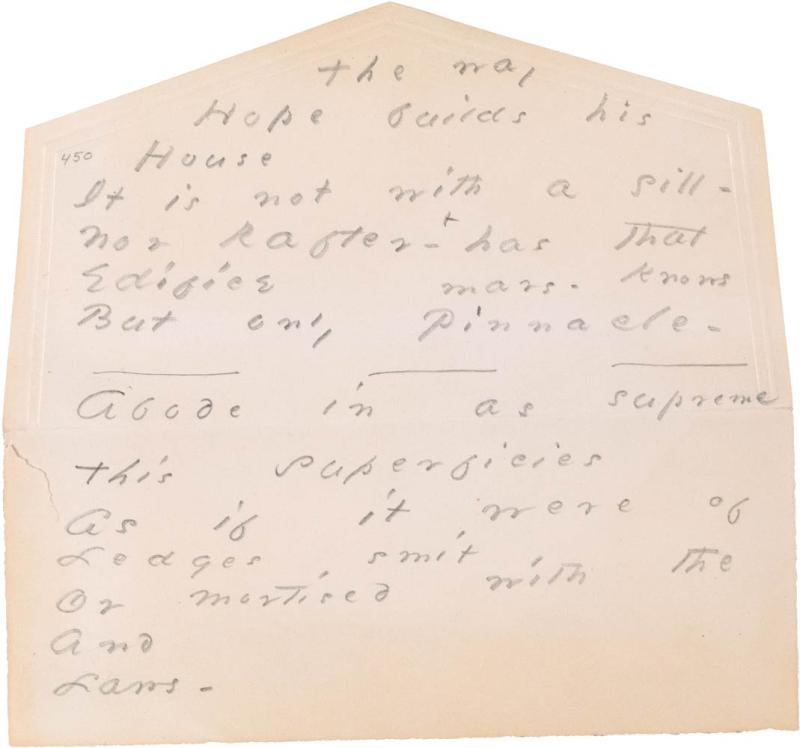 The way
Hope builds his
450
House
It is not with a sill -
Nor Rafter - + has that
Edifice mars - Knows
But only Pinnacle -
Abode in as supreme
This superficies
As if it were of
Ledges smit
Or mortised with the
And
Laws -